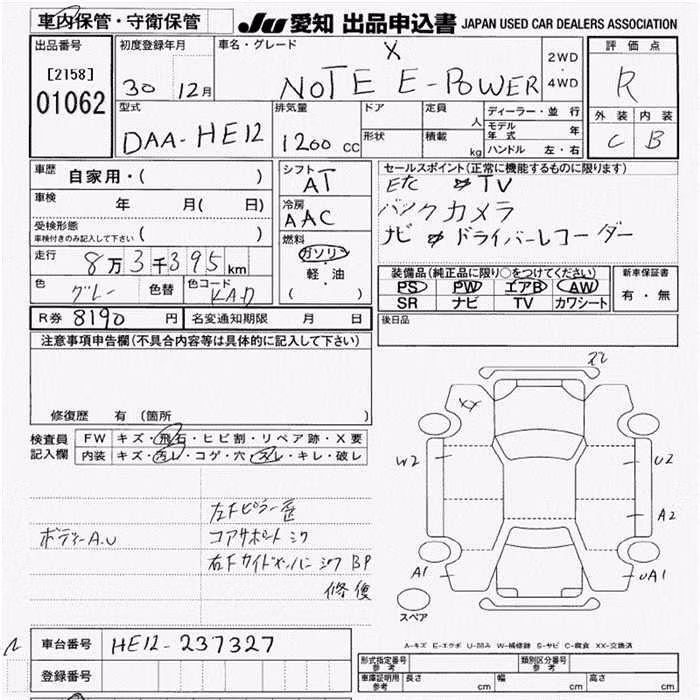 車内保管・守衛保管
JU 愛知 出品申込書 JAPAN USED CAR DEALERS ASSOCIATION
出品番号
[2158]
01062
初度登録年月
30 12月
車名・グレード
X
NOTE E-POWER
2WD
・
4WD
評価点
R
外装 内装
C B
型式
DAA-HE12
排気量
1200 cc
ドア
形状
定員 人
積載 kg
ディーラー・並行
モデル年式 年
ハンドル 左・右
車歴 自家用・( )
車検 年 月( 日)
受検形態
車検付きのみ記入して下さい ( )
走行 8万3千395km
色 グレー 色替 色コード KAD
R券 8190 円 名変通知期限 月 日
シフト
AT
冷房
AAC
燃料
ガソリン
・
軽・油
( )
セールスポイント(正常に機能するものに限ります)
Etc TV
バックカメラ
ナビ ドライバーレコーダー
装備品(純正品に限り○をつけてください)
PS PW エアB AW
SR ナビ TV カワシート
新車保証書
有・無
後日品
注意事項申告欄(不具合内容等は具体的に記入して下さい)
修復歴 有(箇所 )
検査員記入欄
FW キズ・飛石・ヒビ割・リペア跡・X要
内装 キズ・汚レ・コゲ・穴・スレ・キレ・破レ
ボディーA.U
左Fピラー歪
コアサポートシワ
右Fサイドメンバーシワ BP
修復
XX
W2
U2
A2
A1
UA1
スペア
A-キズ E-エクボ U-凹み W-補修跡 S-サビ C-腐食 XX-交換済
車台番号 HE12-237327
登録番号
形式指定番号 参考
類別区分番号 参考
車庫証明用 参考 長さ cm 幅 cm 高さ cm